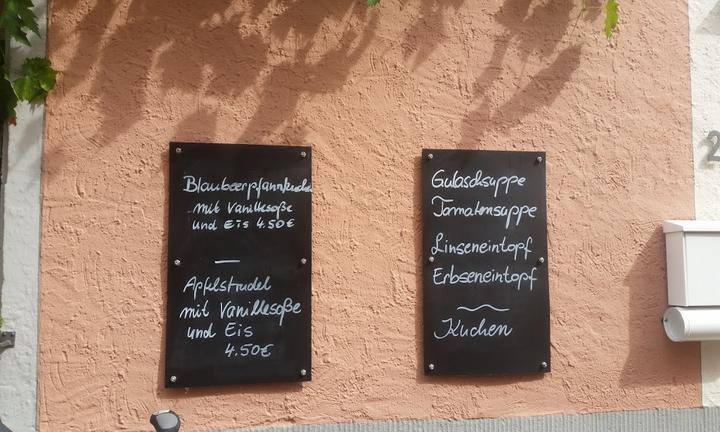 Blaubeerpfannkuchen
mit Vanillesoße
und Eis 4.50€
Apfelstrudel
mit Vanillesoße
und Eis
4.50€
Gulaschsuppe
Tomatensuppe
Linseneintopf
Erbseneintopf
Kuchen
2